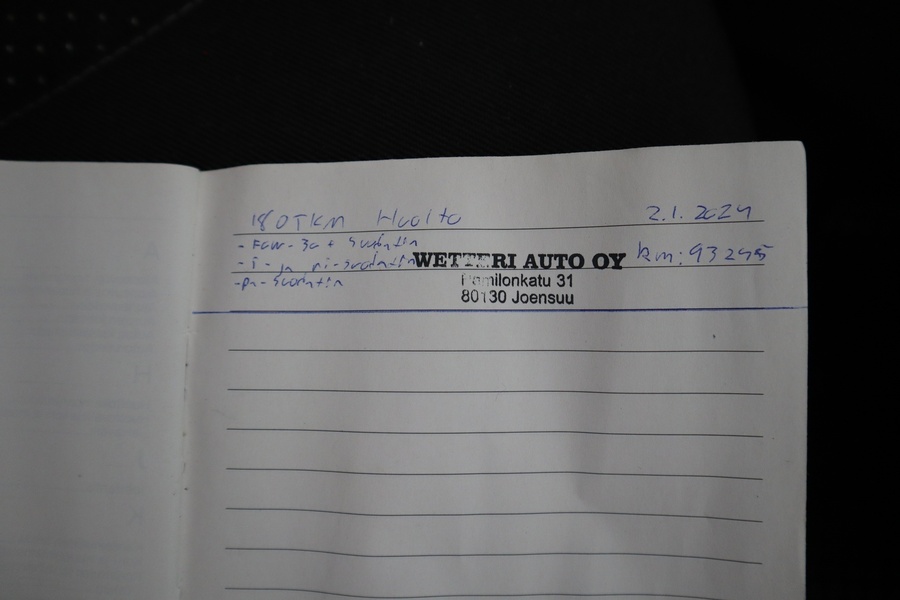 180TKM Huolto 2.1.2024
- 5W-30 + Suodatin
- i- ja ri-suodatin WETTERI AUTO OY km: 93245
-pa-suodatin Hamilonkatu 31
80130 Joensuu